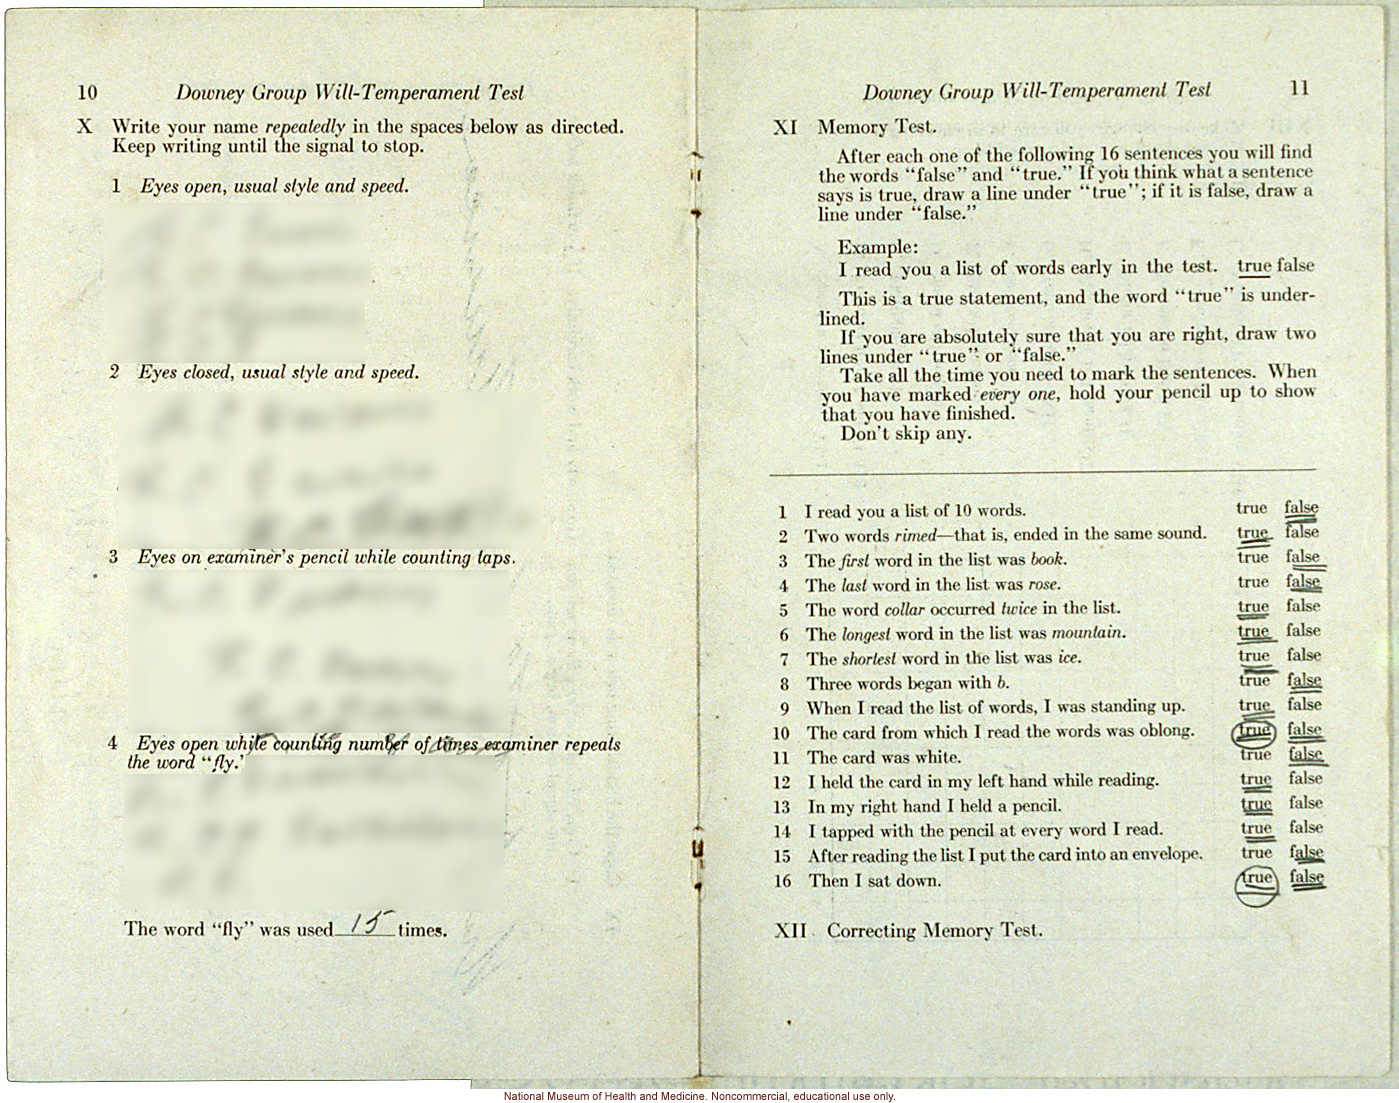 10 Downey Group Will-Temperament Test
X Write your name repeatedly in the spaces below as directed.
Keep writing until the signal to stop.
1 Eyes open, usual style and speed.
2 Eyes closed, usual style and speed.
3 Eyes on examiner's pencil while counting taps.
4 Eyes open while counting number of times examiner repeats
the word "fly."
The word "fly" was used 15 times.
Downey Group Will-Temperament Test 11
XI Memory Test.
After each one of the following 16 sentences you will find
the words "false" and "true." If you think what a sentence
says is true, draw a line under "true"; if it is false, draw a
line under "false."
Example:
I read you a list of words early in the test. true false
This is a true statement, and the word "true" is under-
lined.
If you are absolutely sure that you are right, draw two
lines under "true" or "false."
Take all the time you need to mark the sentences. When
you have marked every one, hold your pencil up to show
that you have finished.
Don't skip any.
1 I read you a list of 10 words. true false
2 Two words rimed—that is, ended in the same sound. true false
3 The first word in the list was book. true false
4 The last word in the list was rose. true false
5 The word collar occurred twice in the list. true false
6 The longest word in the list was mountain. true false
7 The shortest word in the list was ice. true false
8 Three words began with b. true false
9 When I read the list of words, I was standing up. true false
10 The card from which I read the words was oblong. true false
11 The card was white. true false
12 I held the card in my left hand while reading. true false
13 In my right hand I held a pencil. true false
14 I tapped with the pencil at every word I read. true false
15 After reading the list I put the card into an envelope. true false
16 Then I sat down. true false
XII Correcting Memory Test.
National Museum of Health and Medicine. Noncommercial, educational use only.